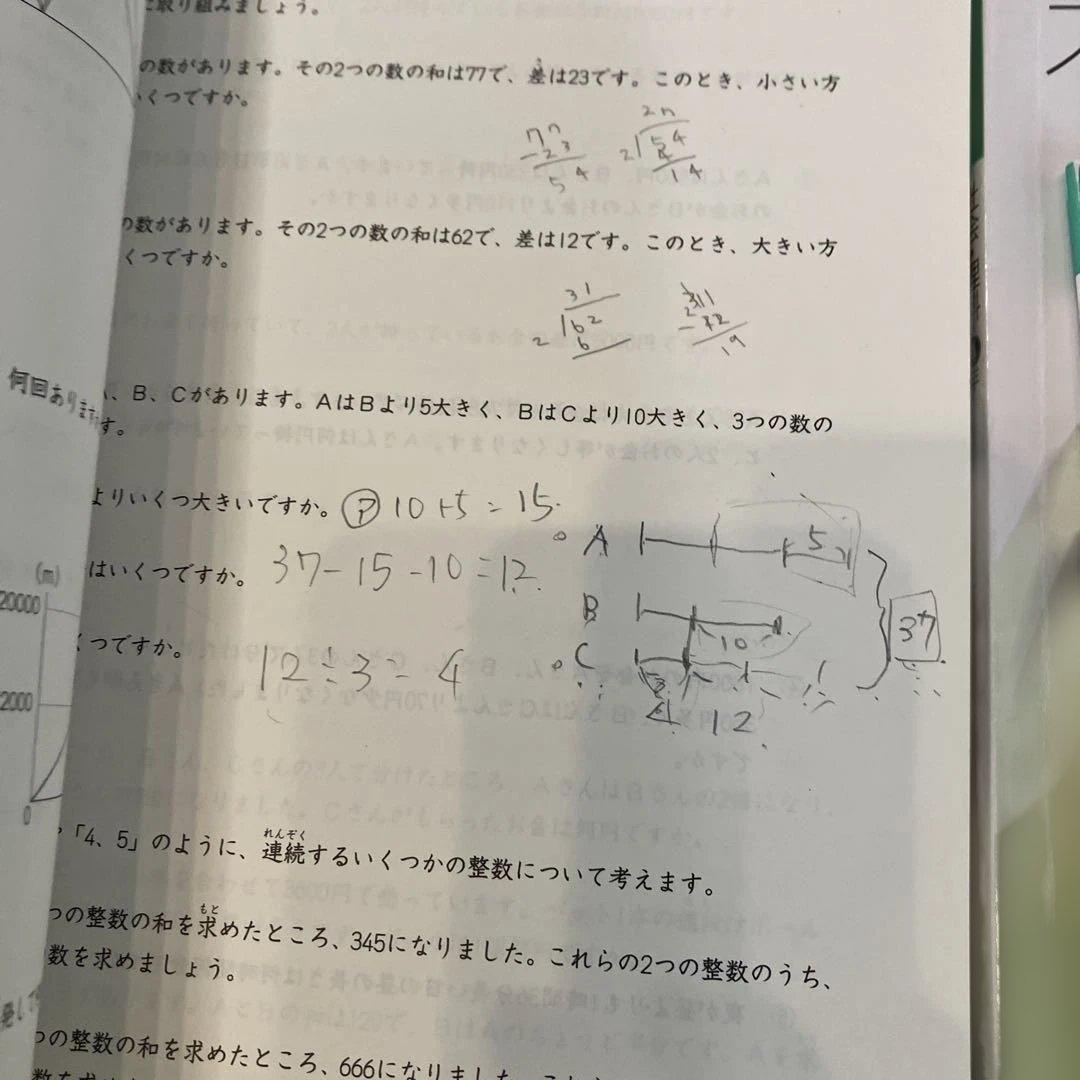 に取り組みましょう。
の数があります。その2つの数の和は77で、差は23です。このとき、小さい方
いくつですか。
77
-23
54
27
2 54
14
の数があります。その2つの数の和は62で、差は12です。このとき、大きい方
くつですか。
31
2 62
6
31
-12
19
何回あります
、B、Cがあります。AはBより5大きく、BはCより10大きく、3つの数の
す。
よりいくつ大きいですか。
10+5=15.
はいくつですか。
37-15-10=12.
くつですか。
12÷3=4
A
5
B
10
C
37
4 12
(m)
20000
2000
0
「4、5」のように、連続するいくつかの整数について考えます。
れんぞく
つの整数の和を求めたところ、345になりました。これらの2つの整数のうち、
もと
数を求めましょう。
つの整数の和を求めたところ、666になりました。